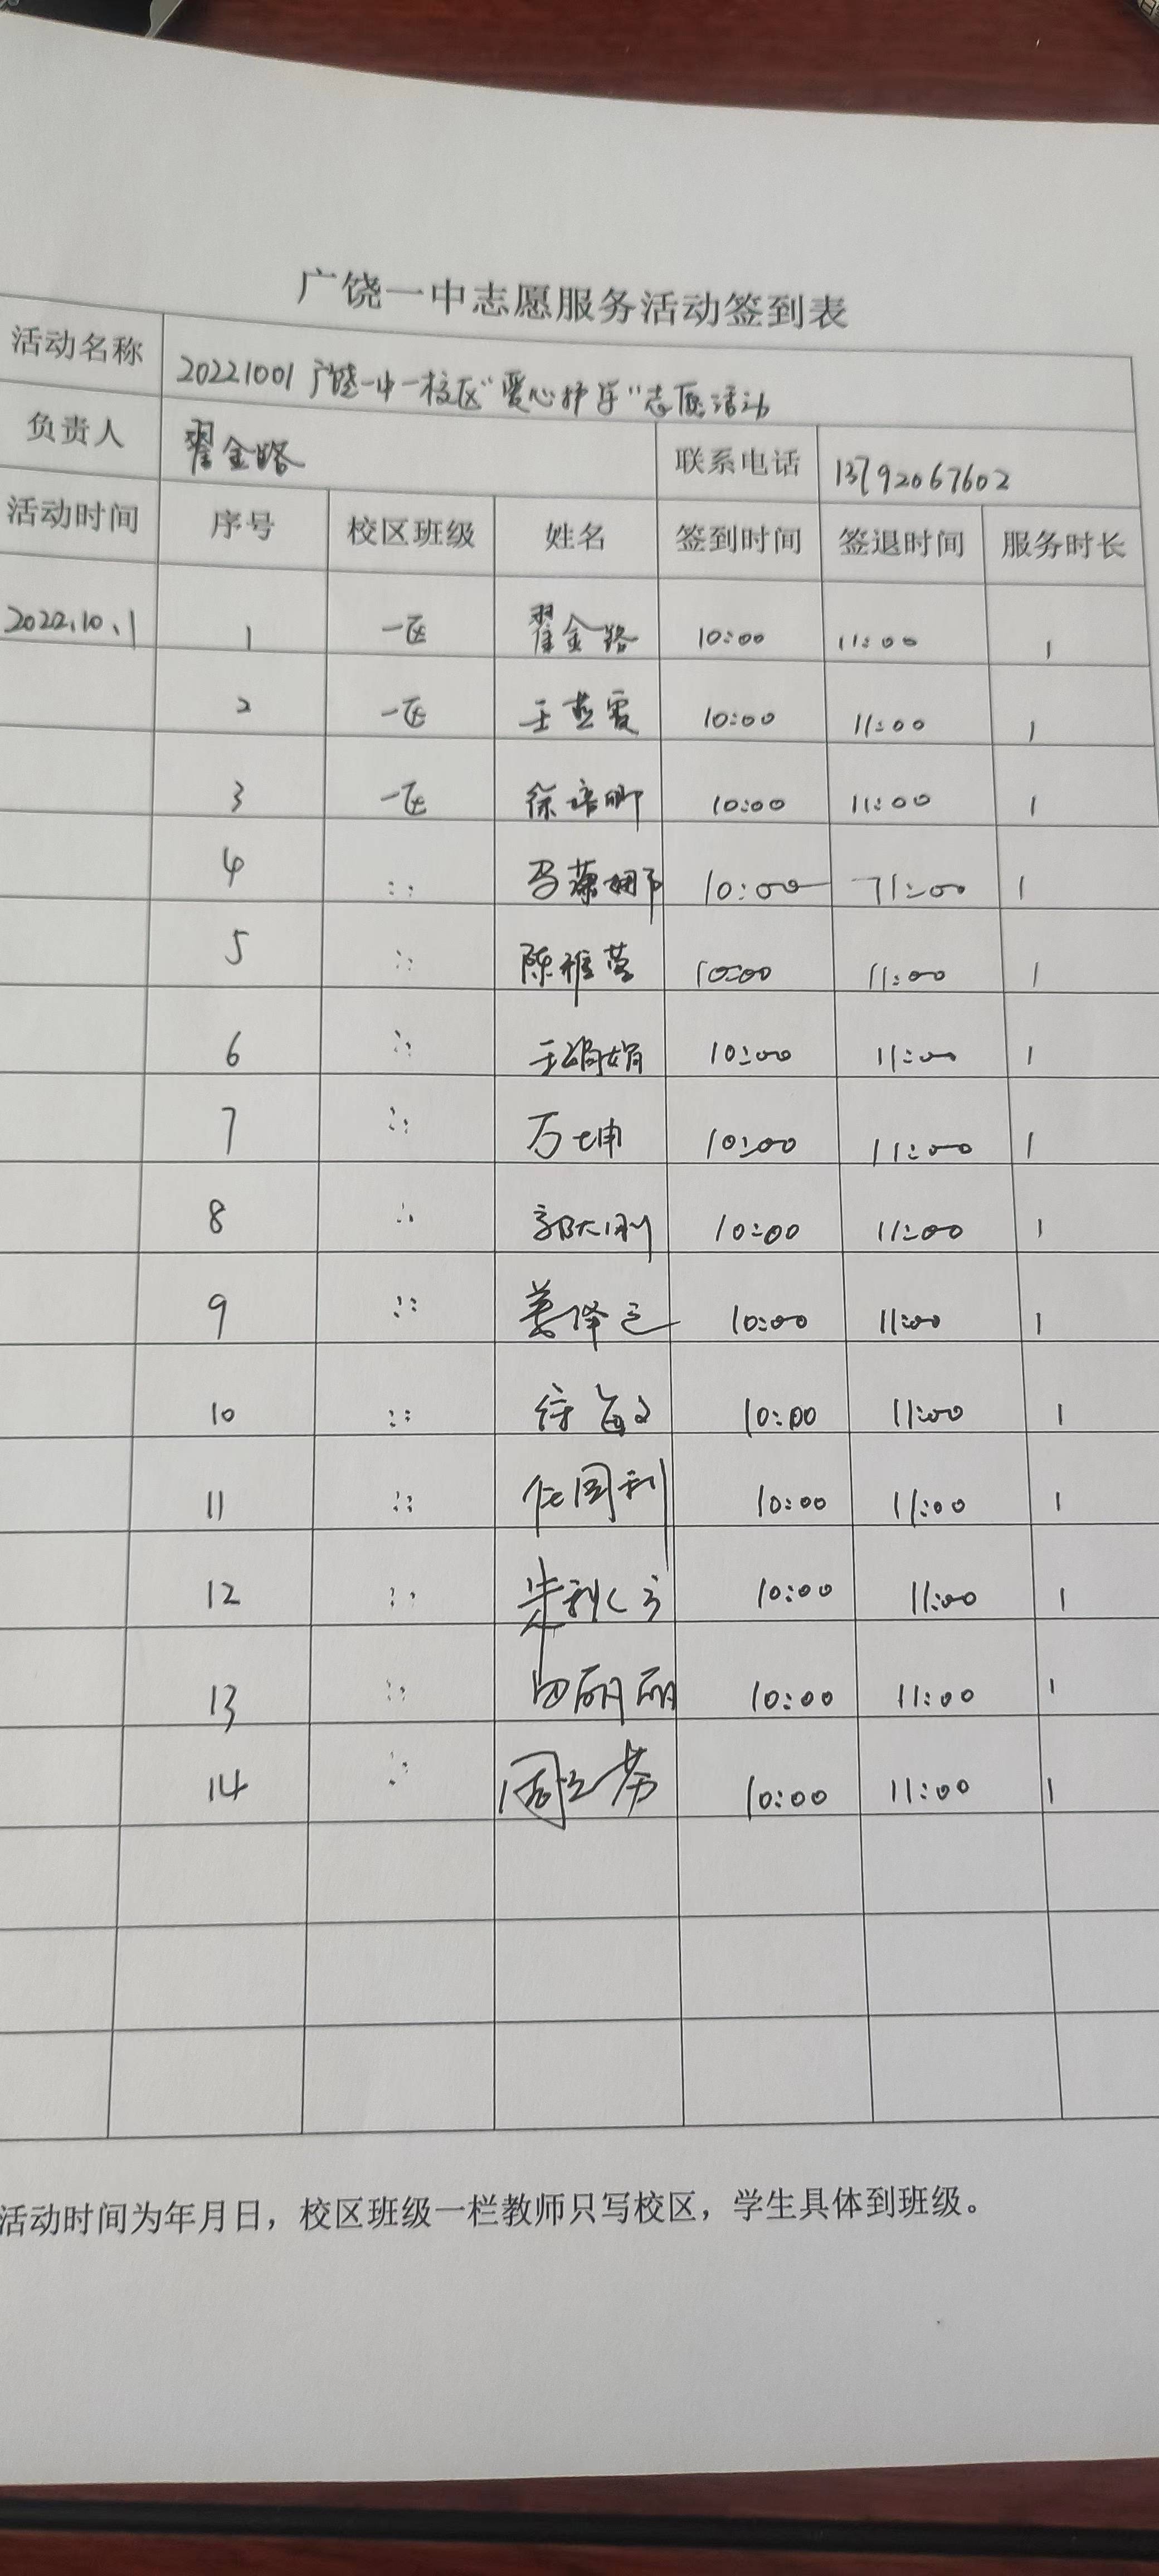 广饶一中志愿服务活动签到表
活动名称 20221001广饶一中一校区“爱心护学”志愿活动
负责人 翟金路 联系电话 13792067602
活动时间 序号 校区班级 姓名 签到时间 签退时间 服务时长
2022.10.1 1 一区 翟金路 10:00 11:00 1
2 一区 王燕霞 10:00 11:00 1
3 一区 徐培卿 10:00 11:00 1
4 :: 马蕭娜 10:00 11:00 1
5 :: 陈雅莹 10:00 11:00 1
6 :: 王娟娟 10:00 11:00 1
7 :: 万坤 10:00 11:00 1
8 :: 郭大刚 10:00 11:00 1
9 :: 姜泽 10:00 11:00 1
10 :: 10:00 11:00 1
11 :: 任国利 10:00 11:00 1
12 :: 朱秋 10:00 11:00 1
13 :: 田丽丽 10:00 11:00 1
14 :: 周芳 10:00 11:00 1
活动时间为年月日，校区班级一栏教师只写校区，学生具体到班级。